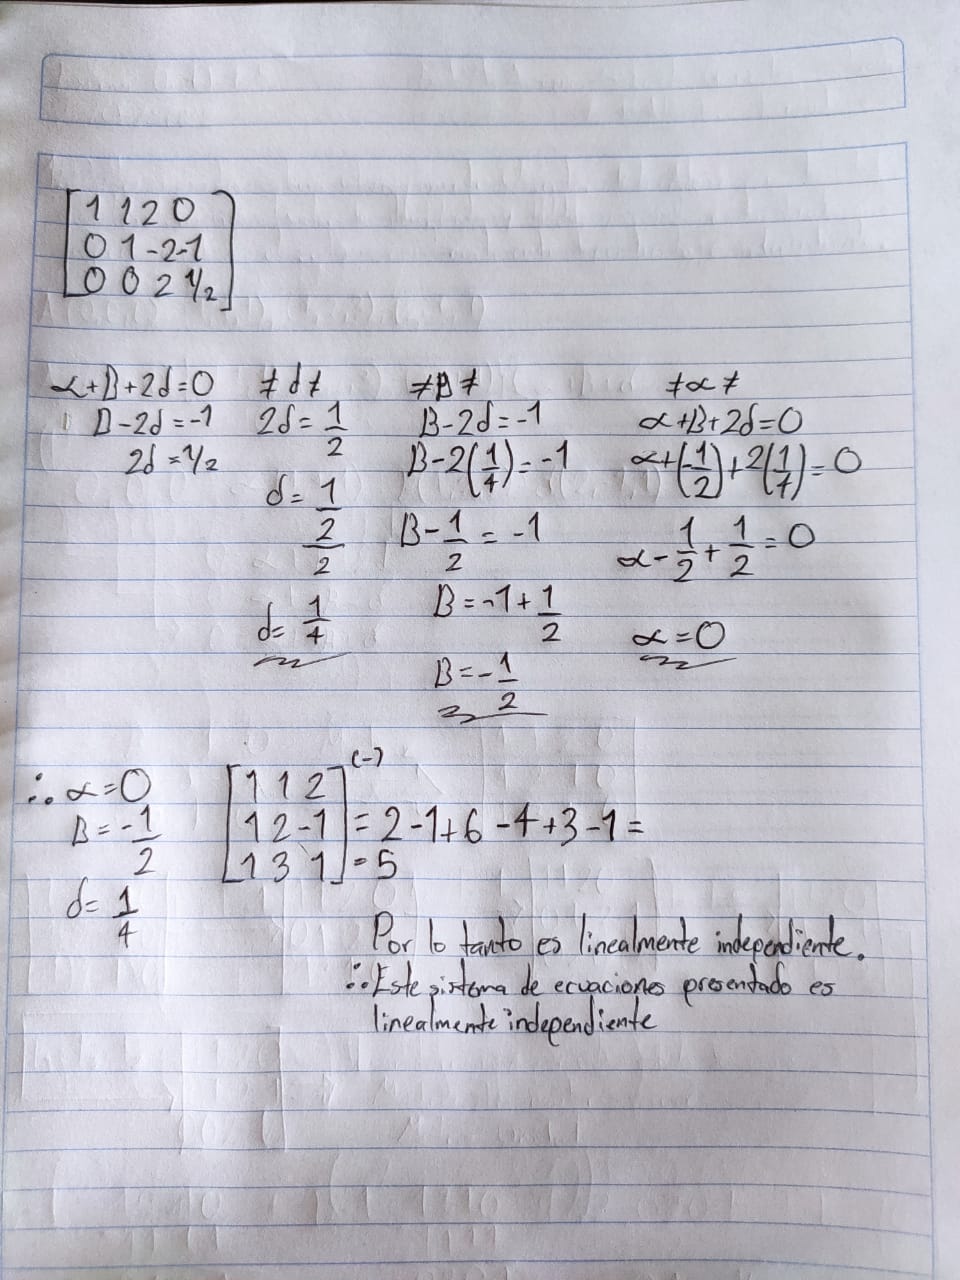 1 1 2 0
0 1 -2 -1
0 0 2 1/2
α+B+2d=0
B-2d=-1
2d=1/2
≠ d ≠
2d=1/2
d=1/2/2
d=1/4
≠B≠
B-2d=-1
B-2(1/4)=-1
B-1/2=-1
B=-1+1/2
B=-1/2
≠α≠
α+B+2d=0
α+(-1/2)+2(1/4)=0
α-1/2+1/2=0
α=0
∴ α=0
B=-1/2
d=1/4
(-)
1 1 2
1 2 -1 = 2-1+6-4+3-1=
1 3 1 = 5
Por lo tanto es linealmente independiente.
∴ Este sistema de ecuaciones presentado es
linealmente independiente